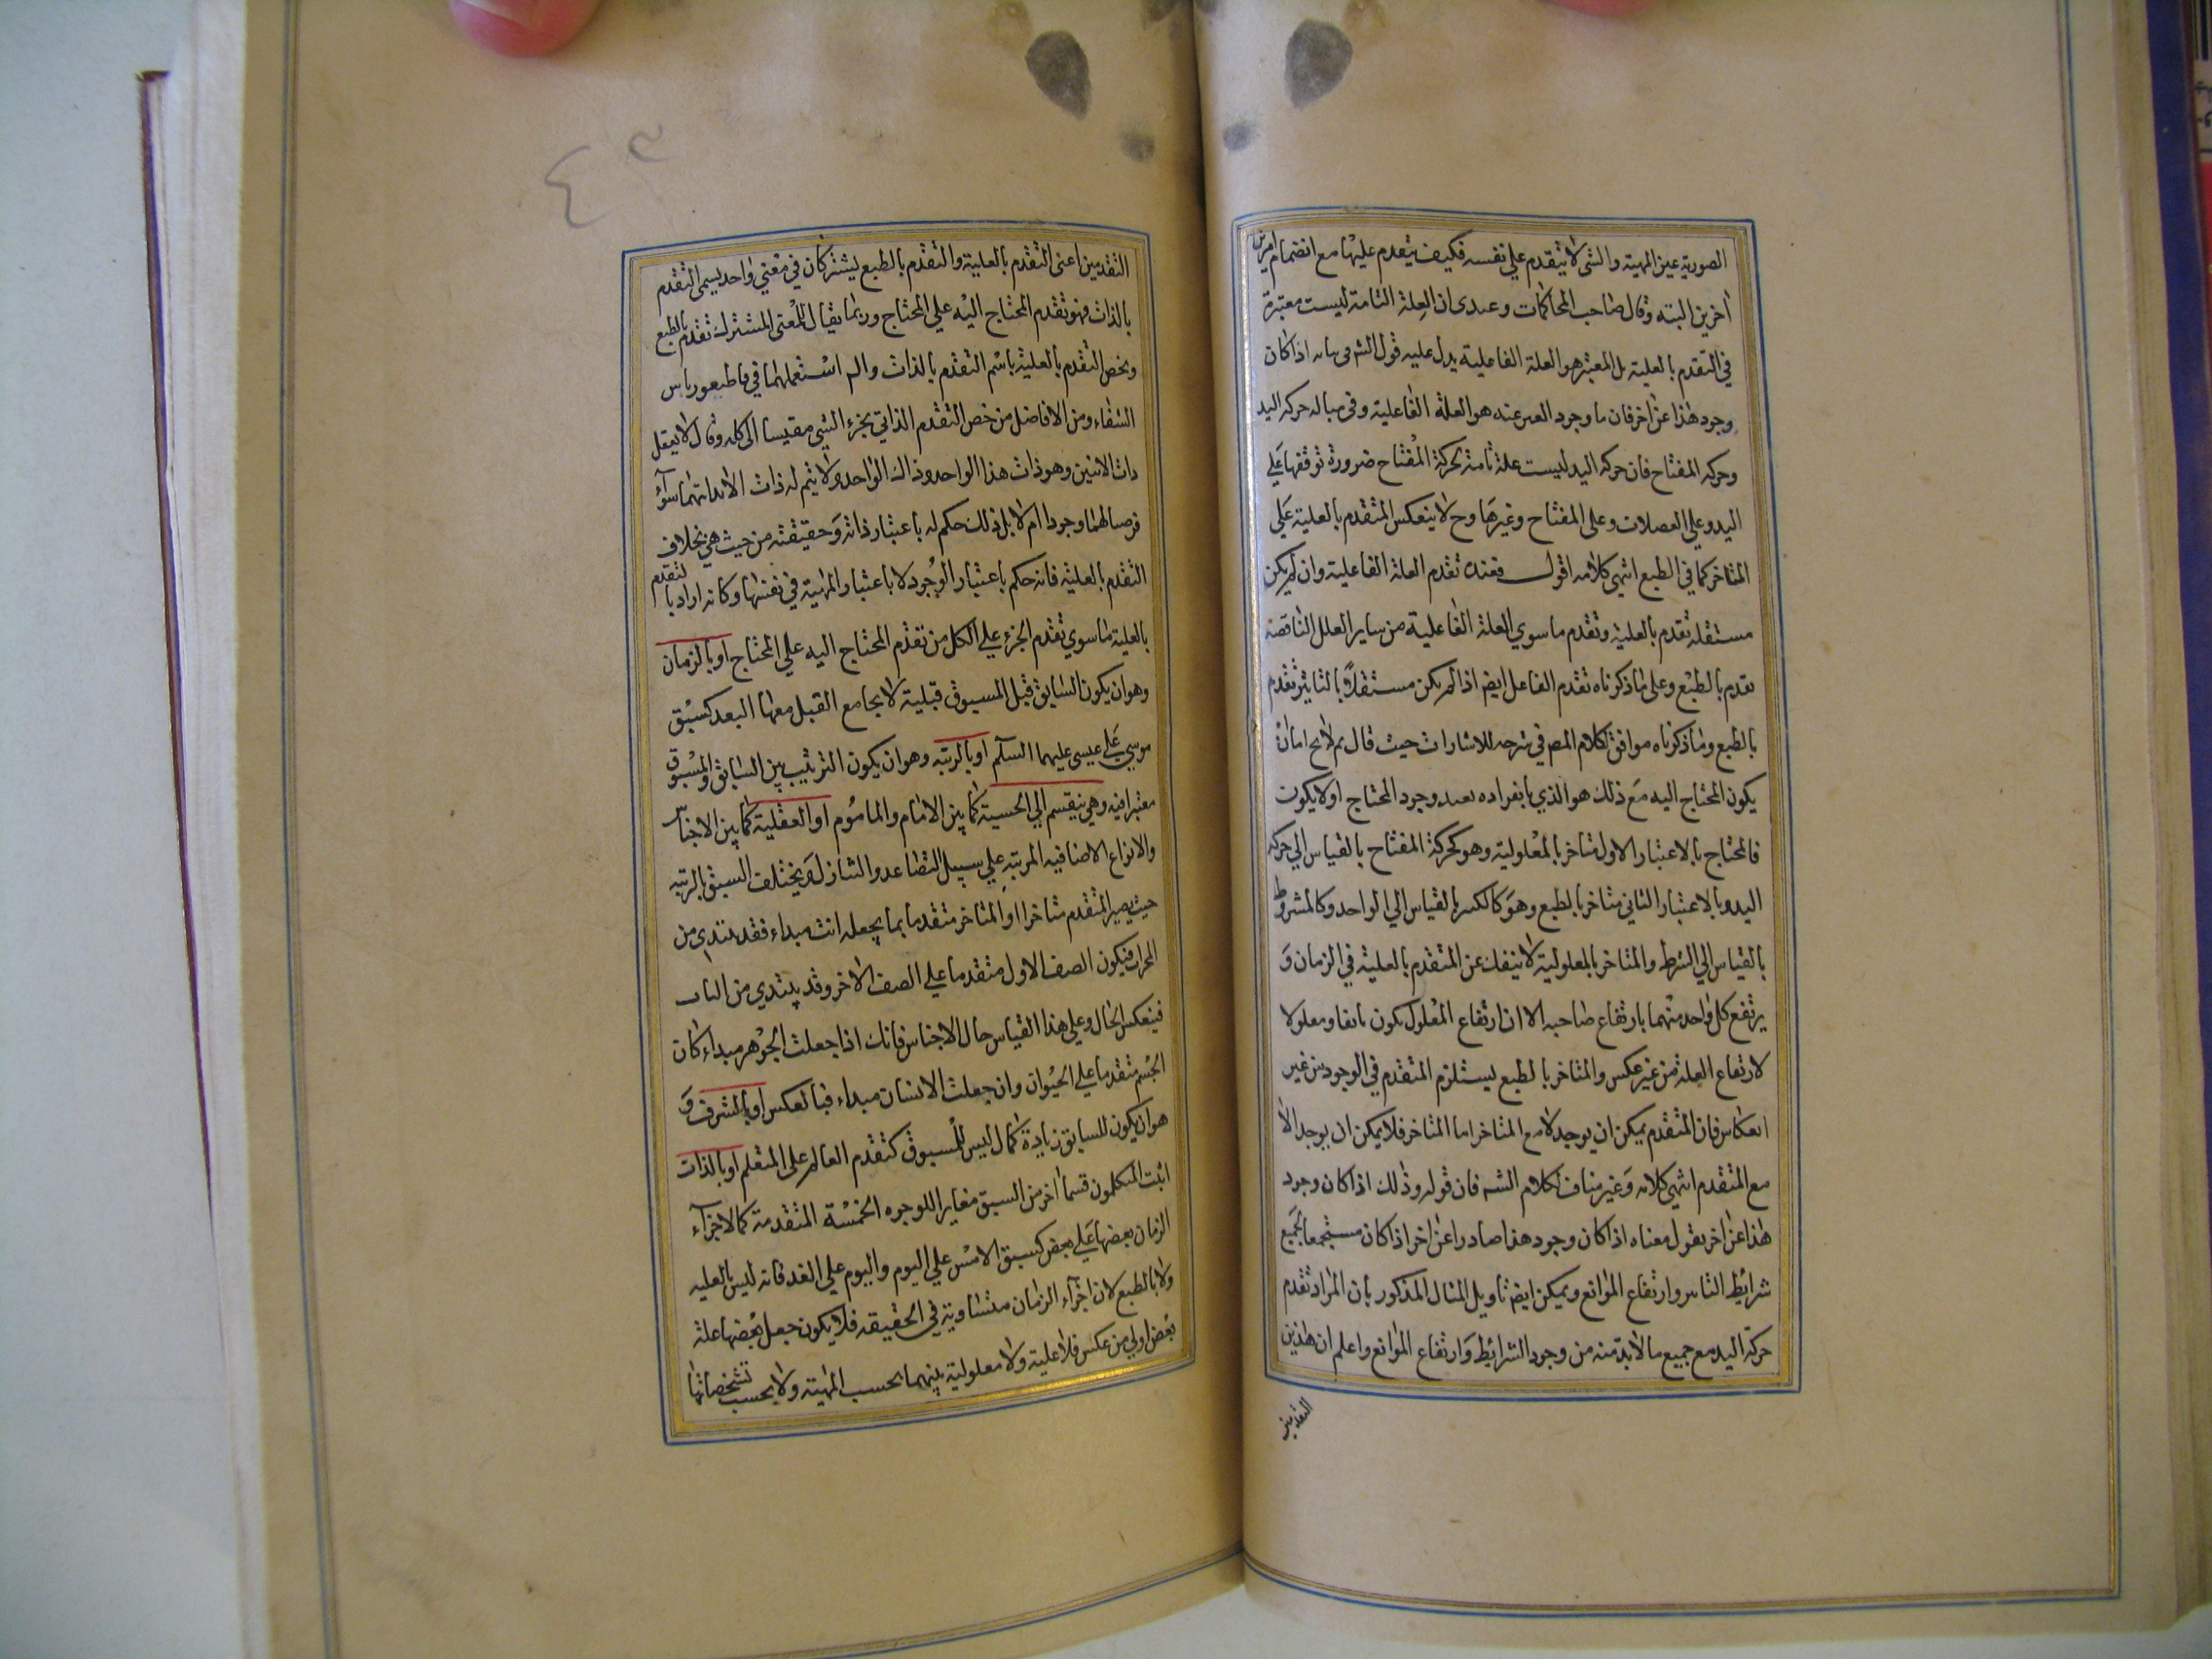 الصورية عين المهية والشئ لا يتقدم علي نفسه فكيف يتقدم عليها مع انضمام امرين
اخرين البته وقال صاحب المحاكمات وعندى ان العلة التامة ليست معتبرة
في التقدم بالعلية بل المعتبر هو العلة الفاعلية يدل عليه قول الشيخ في بيانه اذا كان
وجود هذا عن اخر فان ما وجود الغير عنه هو العلة الفاعلية وفي مثاله حركة اليد
وحركة المفتاح فان حركة اليد ليست علة تامة لحركة المفتاح ضرورة توقفها علي
اليد وعلي العضلات وعلى المفتاح وغيرها وح لا ينعكس المتقدم بالعلية علي
المتاخر كما في الطبع انتهى كلامه اقول فعنده تقدم العلة الفاعلية وان لم يكن
مستقلة تقدم بالعلية وتقدم ما سوي العلة الفاعلية من ساير العلل الناقصة
تقدم بالطبع وعلى ما ذكرناه تقدم الفاعل ايضا اذا لم يكن مستقلا بالتاثير تقدم
بالطبع وما ذكرناه موافق لكلام المص في شرحه للاشارات حيث قال ثم لا يخ اما ان
يكون المحتاج اليه مع ذلك هو الذي بانفراده يفيد وجود المحتاج او لا يكون
فالمحتاج بالاعتبار الاول متاخر بالمعلولية وهو كحركة المفتاح بالقياس الي حركة
اليد وبالاعتبار الثاني متاخر بالطبع وهو كالكثير بالقياس الي الواحد وكالمشروط
بالقياس الي الشرط والمتاخر بالمعلولية لا ينفك عن المتقدم بالعلية في الزمان و
يرتفع كل واحد منهما بارتفاع صاحبه الا ان ارتفاع المعلول يكون تابعا ومعلولا
لارتفاع العلة من غير عكس والمتاخر بالطبع يستلزم المتقدم في الوجود من غير
انعكاس فان المتقدم يمكن ان يوجد لا مع المتاخر اما المتاخر فلا يمكن ان يوجد الا
مع المتقدم انتهى كلامه وغير مناف لكلام الشيخ فان قوله وذلك اذا كان وجود
هذا عن اخر نقول معناه اذا كان وجود هذا صادرا عن اخر اذا كان مستجمعا لجميع
شرائط التاثير وارتفاع الموانع ويمكن ايضا تاويل المثال المذكور بان المراد تقدم
حركة اليد مع جميع ما لا بد منه من وجود الشرائط وارتفاع الموانع واعلم ان هذين
التقدمين
التقدمين اعنى التقدم بالعلية والتقدم بالطبع يشتركان في معني واحد يسمى التقدم
بالذات فهو تقدم المحتاج اليه علي المحتاج وربما يقال للمعنى المشترك تقدم بالطبع
ويخص التقدم بالعلية باسم التقدم بالذات والشيخ استعملهما في قاطيغورياس
الشفاء ومن الافاضل من خص التقدم الذاتي بجزء الشيئ مقيسا الى كله وقال لا يعقل
ذات الاثنين وهو ذات هذا الواحد وذاك الواحد ولا يتم له ذات الا بذاتهما سواء
فرضنا لهما وجودا ام لا بل ذلك حكم له باعتبار ذاته وحقيقته من حيث هي بخلاف
التقدم بالعلية فانه حكم باعتبار الوجود لا باعتبار المهية في نفسها وكانه اراد بالتقدم
بالعلية ما سوي تقدم الجزء علي الكل من تقدم المحتاج اليه علي المحتاج او بالزمان
وهو ان يكون السابق قبل المسبوق قبلية لا يجامع القبل معها البعد كسبق
موسي علي عيسى عليهما السلم او بالرتبه وهو ان يكون الترتيب بين السابق والمسبوق
معتبرا فيه وهي ينقسم الي الحسية كما بين الامام والماموم او العقلية كما بين الاجناس
والانواع الاضافيه المرتبة علي سبيل التصاعد والتنازل ويختلف السبق بالرتبه
حيث يصير المتقدم متاخرا او المتاخر متقدما بما يجعله انت مبداء فقد يبتدي من
المحراب فيكون الصف الاول متقدما علي الصف الاخر وقد يبتدي من الباب
فينعكس الحال وعلي هذا القياس حال الاجناس فانك اذا جعلت الجوهر مبداء كان
الجسم متقدما علي الحيوان وان جعلت الانسان مبداء فبالعكس او بالشرف و
هو ان يكون للسابق زيادة كمال ليس للمسبوق كتقدم العالم على المتعلم او بالذات
اثبت المتكلمون قسما اخر من السبق مغايرا للوجوه الخمسة المتقدمة كما لاجزاء
الزمان بعضها علي بعض كسبق الامس علي اليوم واليوم علي الغد فانه ليس بالعليه
ولا بالطبع لان اجزاء الزمان متساوية في الحقيقه فلا يكون جعل بعضها علة
بعض اولي من عكس فلا علية ولا معلولية بينهما بحسب المهية ولا بحسب تشخصاتها